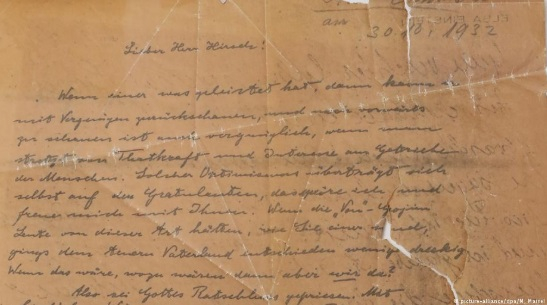 am
30. 10. 1932
Lieber Herr Hirsch!
Wenn einer was geleistet hat, dann kann er
mit Vergnügen zurückschauen, und nach vorwärts
zu schauen ist auch vergnüglich, wenn man
strotzt von Thatkraft und Interesse am
der Menschen. Solcher Optimismus überträgt sich
selbst auf den Gratulanten, das spüre ich, und
freue mich mit Ihnen. Wenn die
Leute von dieser Art hätten, wie Sie einer sind,
gings dem teuern Vaterland entschieden weniger dreckig.
Wenn das wäre, wozu wären dann aber wir da?
Also sei Gottes Ratschluss gepriesen. Mit
© picture-alliance/dpa/